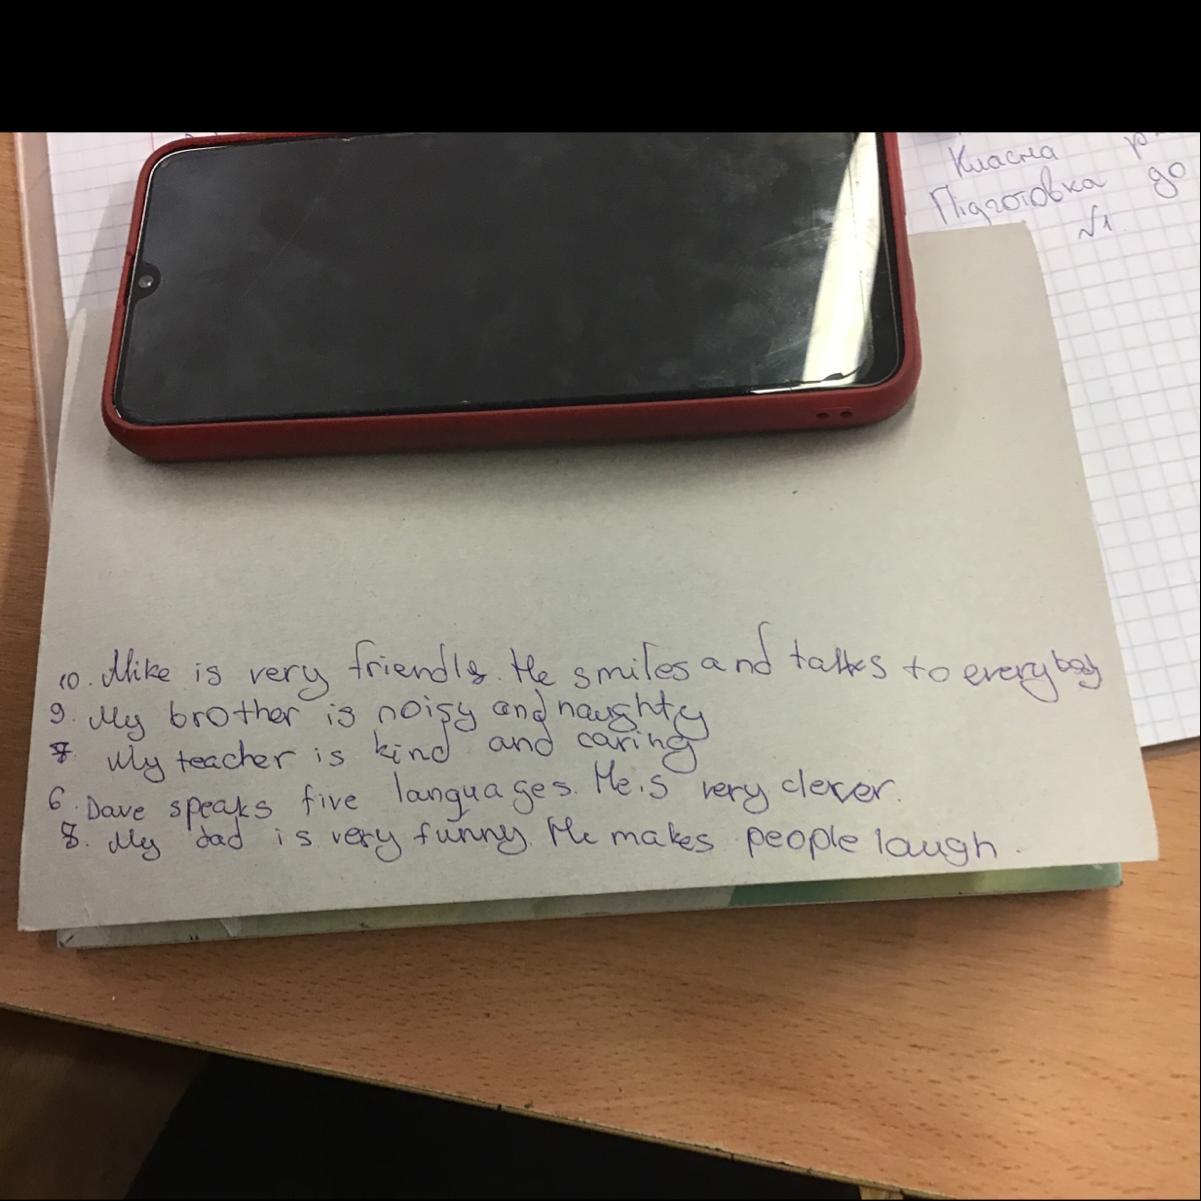 Класна
Підготовка до
№1.
10. Mike is very friendly. He smiles and talks to everybody
9. My brother is noisy and naughty
7. My teacher is kind and caring
6. Dave speaks five languages. He is very clever.
8. My dad is very funny. He makes people laugh.